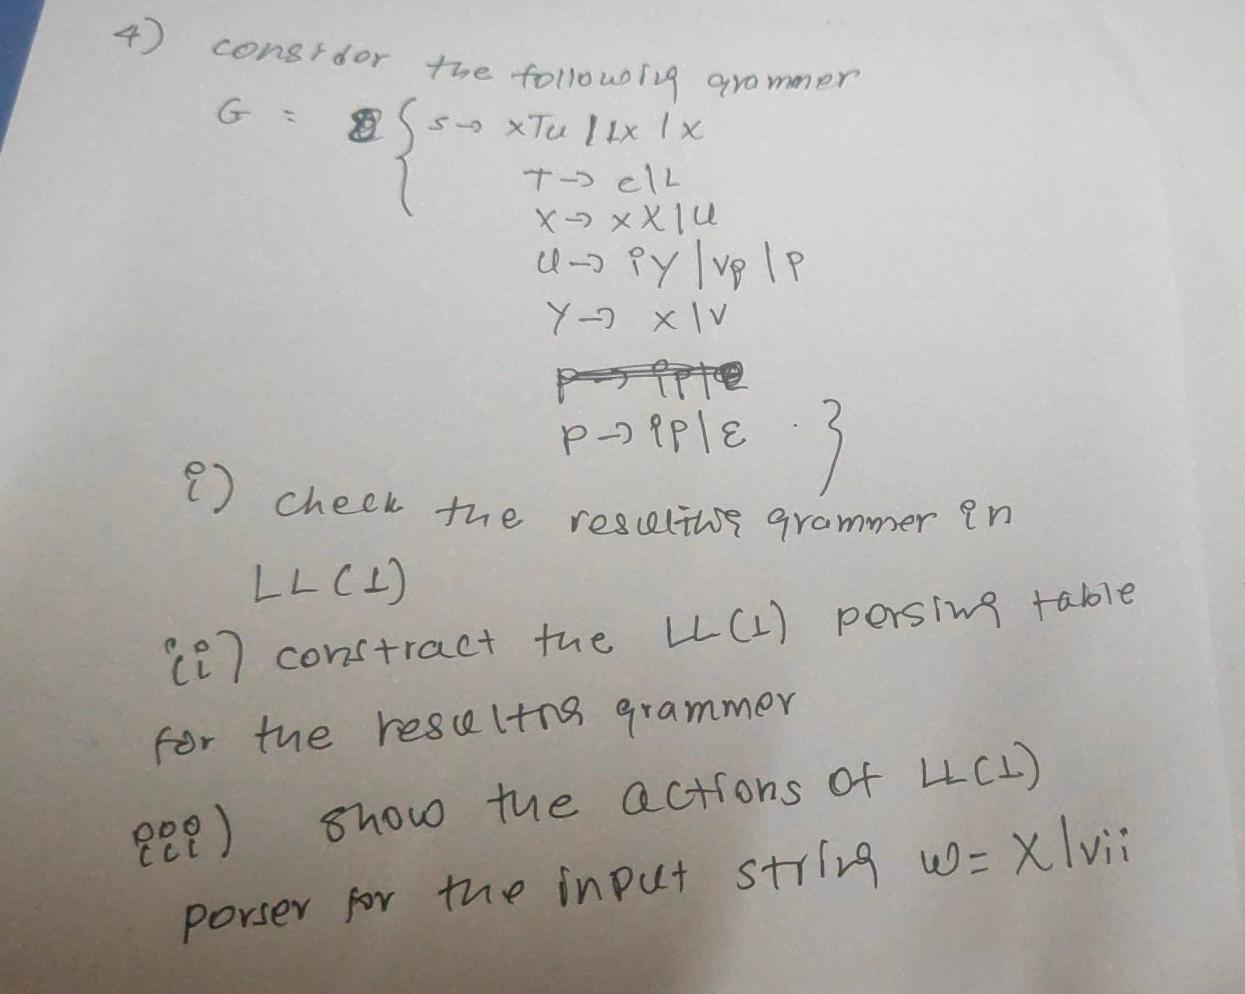 4) consider the following grammer
G = { S → xTu | Lx | X
T → c | L
X → xX | U
U → iY | vp | P
Y → x | v
P → iP | ε . }
i) check the resulting grammer in
LL(1)
ii) constract the LL(1) persing table
for the resulting grammer
iii) show the actions of LL(1)
porser for the input string w= xlvii